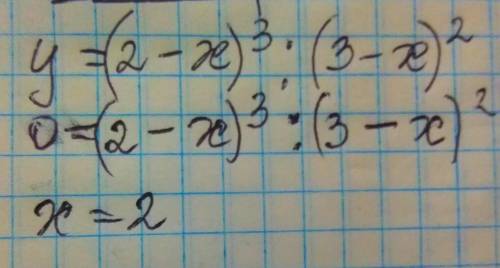 y = (2 - x)³ : (3 - x)²
0 = (2 - x)³ : (3 - x)²
x = 2